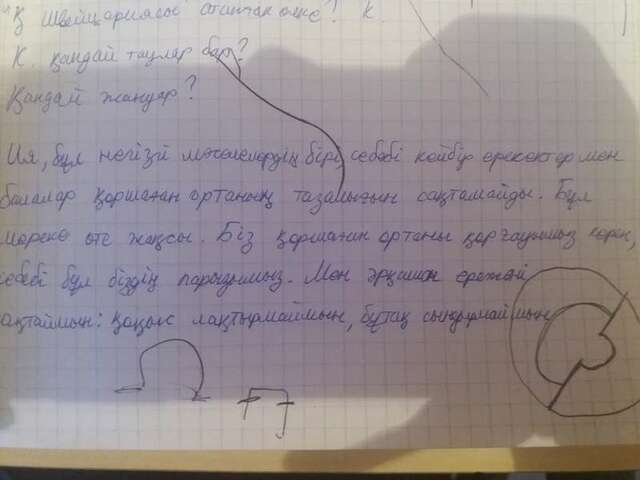 Қ Швейцариясы аталған өлке? К.
К. қандай таулар бар?
Қандай жануар?
Ия, бұл негізгі мәселелердің бірі, себебі кейбір ересектер мен
балалар қоршаған ортаның тазалығын сақтамайды. Бұл
мереке өте жақсы. Біз қоршаған ортаны қорғауымыз керек,
себебі бұл біздің парызымыз. Мен әрқашан ережені
сақтаймын: қоқыс лақтырмаймын, бұтақ сындырмаймын